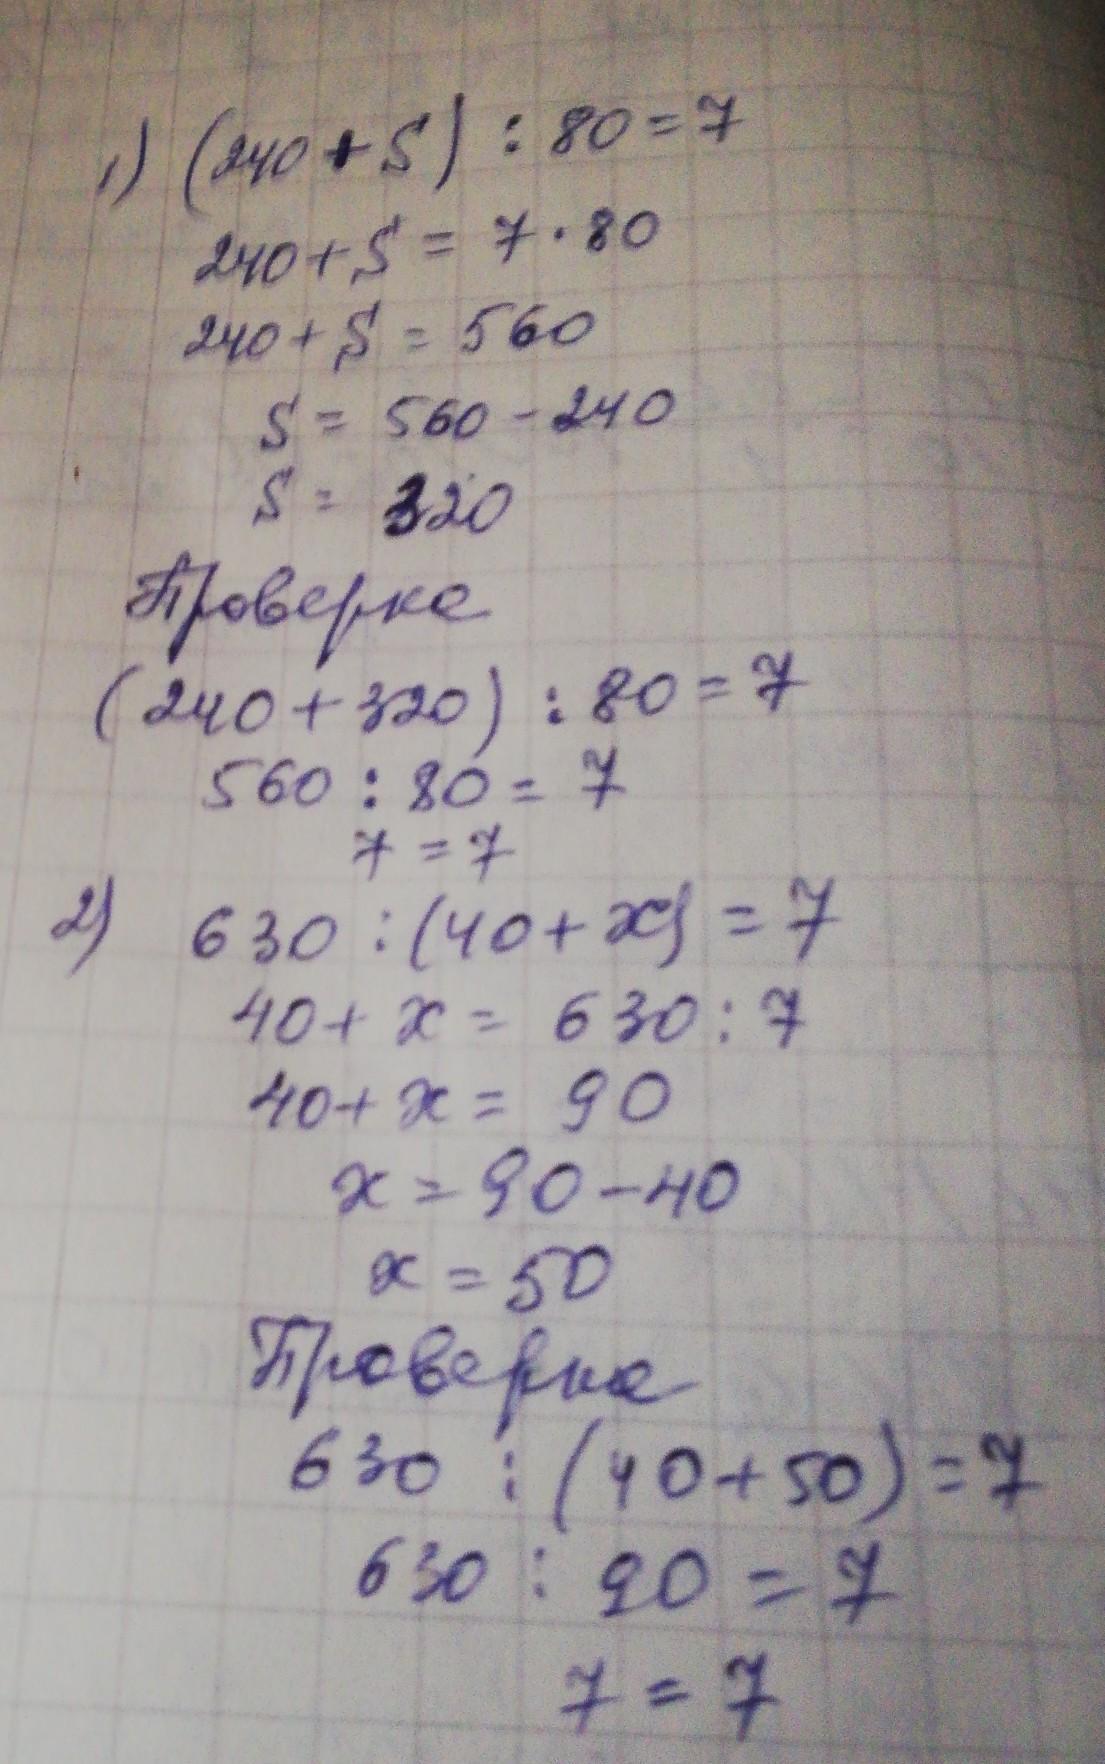 1) (240 + S) : 80 = 7
240 + S = 7 · 80
240 + S = 560
S = 560 - 240
S = 320
Проверка
(240 + 320) : 80 = 7
560 : 80 = 7
7 = 7
2) 630 : (40 + x) = 7
40 + x = 630 : 7
40 + x = 90
x = 90 - 40
x = 50
Проверка
630 : (40 + 50) = 7
630 : 90 = 7
7 = 7